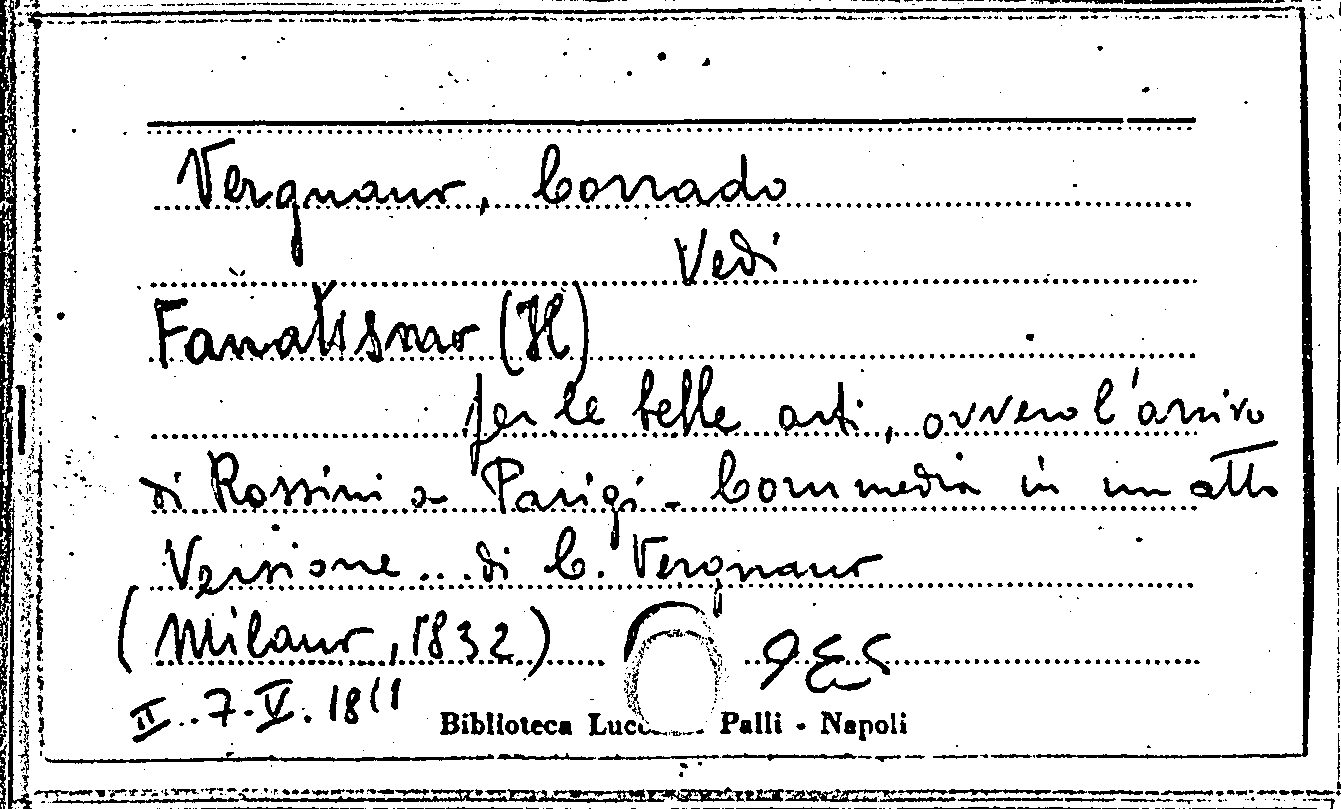 Vergnano, Corrado
Vedi
Fanatismo (Il)
per le belle arti, ovvero l'arrivo
di Rossini a Parigi - Commedia in un atto
Versione ... di C. Vergnano
(Milano, 1832)
II. 7. V. 18
Biblioteca Palli - Napoli